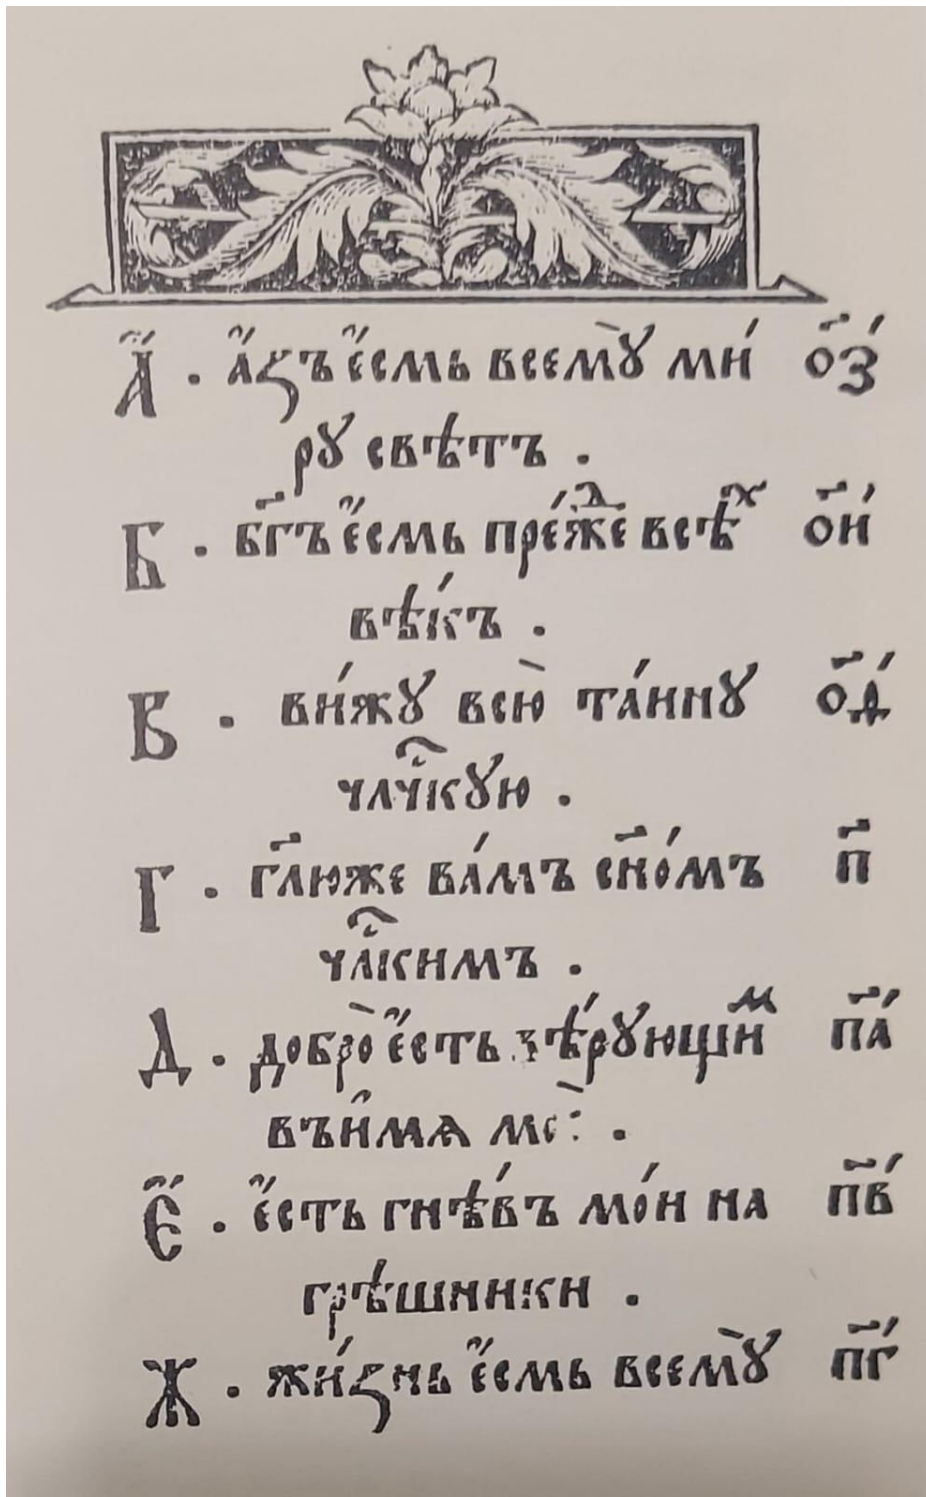 А҆҃ . а҆́зъ є҆́смь всемꙋ̀ ми́ о҃з
рꙋ свѣтъ .
Б . бг҃ъ є҆́смь пре́жⷣе всѣⷯ о҃и
вѣ́къ .
В . ви́жꙋ всю̀ та́инꙋ о҃д
члч҃кꙋю .
Г . гл҃юже ва́мъ сн҃о́мъ п҃
чл҃кимъ .
Д . добро̀ є҆́сть вѣ́рꙋющиⷨ п҃а
въи҆́мѧ моѐ .
Є҆́ . є҆́сть гнѣ́въ мо́и на п҃в
грѣшники .
Ж . жи́знь є҆́смь всемꙋ̀ п҃г